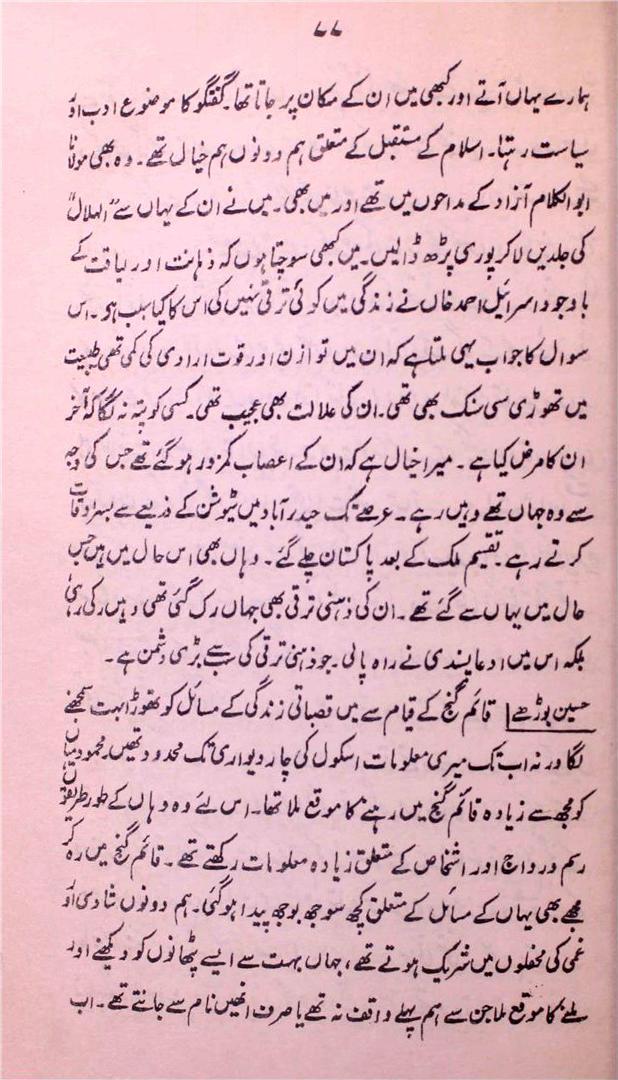 ۷۷
ہمارے یہاں آتے اور کبھی میں ان کے مکان پر جاتا تھا۔ گفتگو کا موضوع ادب اور
سیاست رہتا۔ اسلام کے مستقبل کے متعلق ہم دونوں ہم خیال تھے۔ وہ بھی مولانا
ابوالکلام آزاد کے مداحوں میں تھے اور میں بھی۔ میں نے ان کے یہاں سے "الہلال"
کی جلدیں لا کر پوری پڑھ ڈالیں۔ میں کبھی سوچتا ہوں کہ ذہانت اور لیاقت کے
باوجود اسرائیل احمد خاں نے زندگی میں کوئی ترقی نہیں کی اس کا کیا سبب ہو۔ اس
سوال کا جواب یہی ملتا ہے کہ ان میں توازن اور قوت ارادی کی کمی تھی طبیعت
میں تھوڑی سی سنک بھی تھی۔ ان کی علالت بھی عجیب تھی۔ کسی کو پتہ نہ لگا کہ آخر
ان کا مرض کیا ہے۔ میرا خیال ہے کہ ان کے اعصاب کمزور ہو گئے تھے جس کی وجہ
سے وہ جہاں تھے وہیں رہے۔ عرصے تک حیدرآباد میں ٹیوشن کے ذریعے سے بسر اوقات
کرتے رہے۔ تقسیم ملک کے بعد پاکستان چلے گئے۔ وہاں بھی اس حال میں ہیں جس
حال میں یہاں سے گئے تھے۔ ان کی ذہنی ترقی بھی جہاں رک گئی تھی وہیں رکی رہی
بلکہ اس میں ادعا پسندی نے راہ پالی۔ جو ذہنی ترقی کی سب سے بڑی دشمن ہے۔
حسین بوڑھے قائم گنج کے قیام سے میں قصباتی زندگی کے مسائل کو تھوڑا بہت سمجھنے
لگا ورنہ اب تک میری معلومات اسکول کی چار دیواری تک محدود تھیں۔ محمود میاں
کو مجھ سے زیادہ قائم گنج میں رہنے کا موقع ملا تھا۔ اس لئے وہ وہاں کے طور طریقوں
رسم و رواج اور اشخاص کے متعلق زیادہ معلومات رکھتے تھے۔ قائم گنج میں رہ کر
مجھے بھی یہاں کے مسائل کے متعلق کچھ سوجھ بوجھ پیدا ہو گئی۔ ہم دونوں شادی اور
غمی کی محفلوں میں شریک ہوتے تھے، جہاں بہت سے ایسے پٹھانوں کو دیکھنے اور
ملنے کا موقع ملا جن سے ہم پہلے واقف نہ تھے یا صرف انھیں نام سے جانتے تھے۔ اب